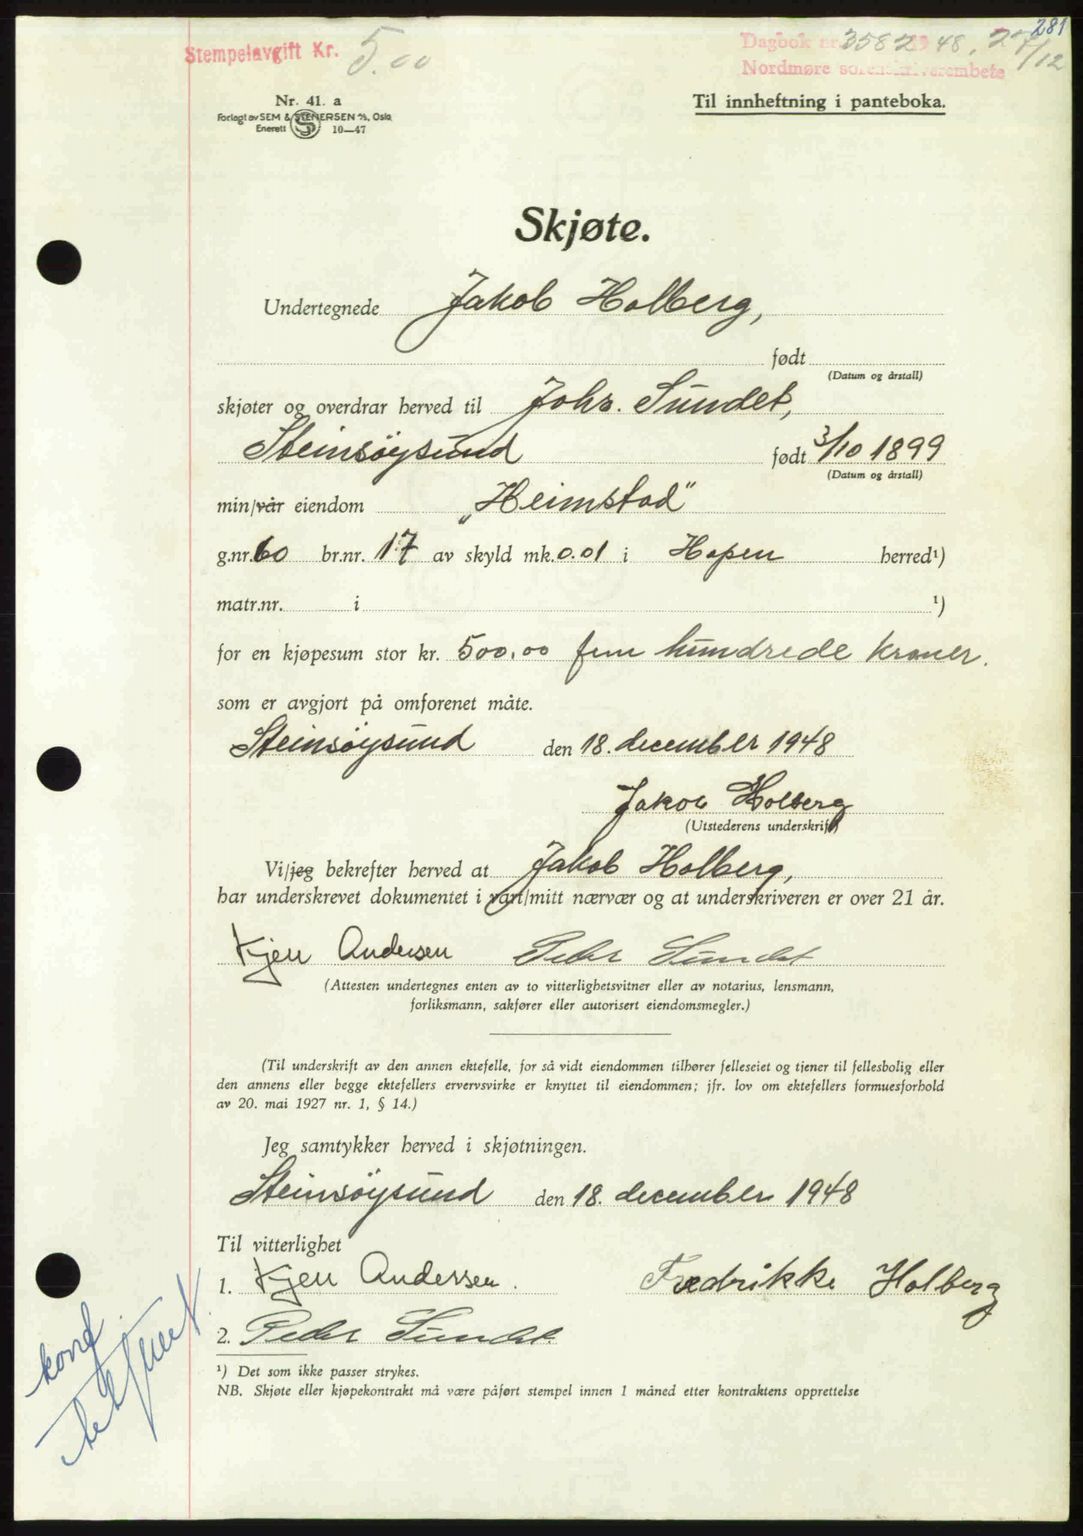 281
Stempelavgift Kr. 5.00
Dagbok nr. 3582 1948, 27/12
Nordmøre sorenskriverembete
Nr. 41. a
Forlagt av SEM & STENERSEN A/S, Oslo
Enerett S 10—47
Til innheftning i panteboka.
Skjøte.
Undertegnede Jakob Holberg,
født
(Datum og årstall)
skjøter og overdrar herved til Johs. Sundet,
Steinsøysund født 3/10 1899
(Datum og årstall)
min/vår eiendom „Heimstad"
g.nr. 60 br.nr. 17 av skyld mk. 0.01 i Hopen herred¹)
matr.nr. i ¹)
for en kjøpesum stor kr. 500,00 fem hundrede kroner.
som er avgjort på omforenet måte.
Steinsøysund den 18. december 1948
Jakob Holberg
(Utstederens underskrift)
Vi/jeg bekrefter herved at Jakob Holberg,
har underskrevet dokumentet i vårt/mitt nærvær og at underskriveren er over 21 år.
Kjell Andersen Peder Sundet
(Attesten undertegnes enten av to vitterlighetsvitner eller av notarius, lensmann,
forliksmann, sakfører eller autorisert eiendomsmegler.)
(Til underskrift av den annen ektefelle, for så vidt eiendommen tilhører felleseiet og tjener til fellesbolig eller
den annens eller begge ektefellers ervervsvirke er knyttet til eiendommen; jfr. lov om ektefellers formuesforhold
av 20. mai 1927 nr. 1, § 14.)
Jeg samtykker herved i skjøtningen.
Steinsøysund den 18. december 1948
Til vitterlighet
1. Kjell Anderssen. Fredrikke Holberg
2. Peder Sundet.
¹) Det som ikke passer strykes.
NB. Skjøte eller kjøpekontrakt må være påført stempel innen 1 måned etter kontraktens opprettelse
kond.